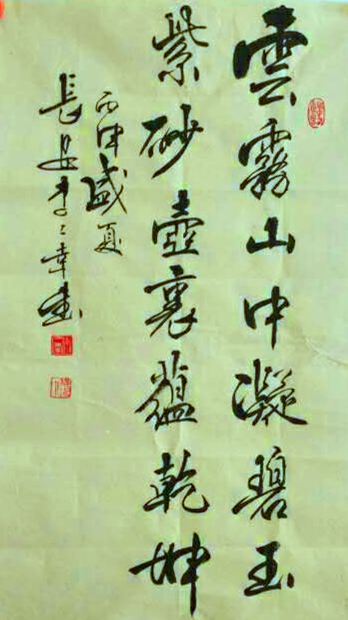 雲霧山中凝碧玉
紫砂壺裏蘊乾坤
丙申盛夏
長安李三幸書